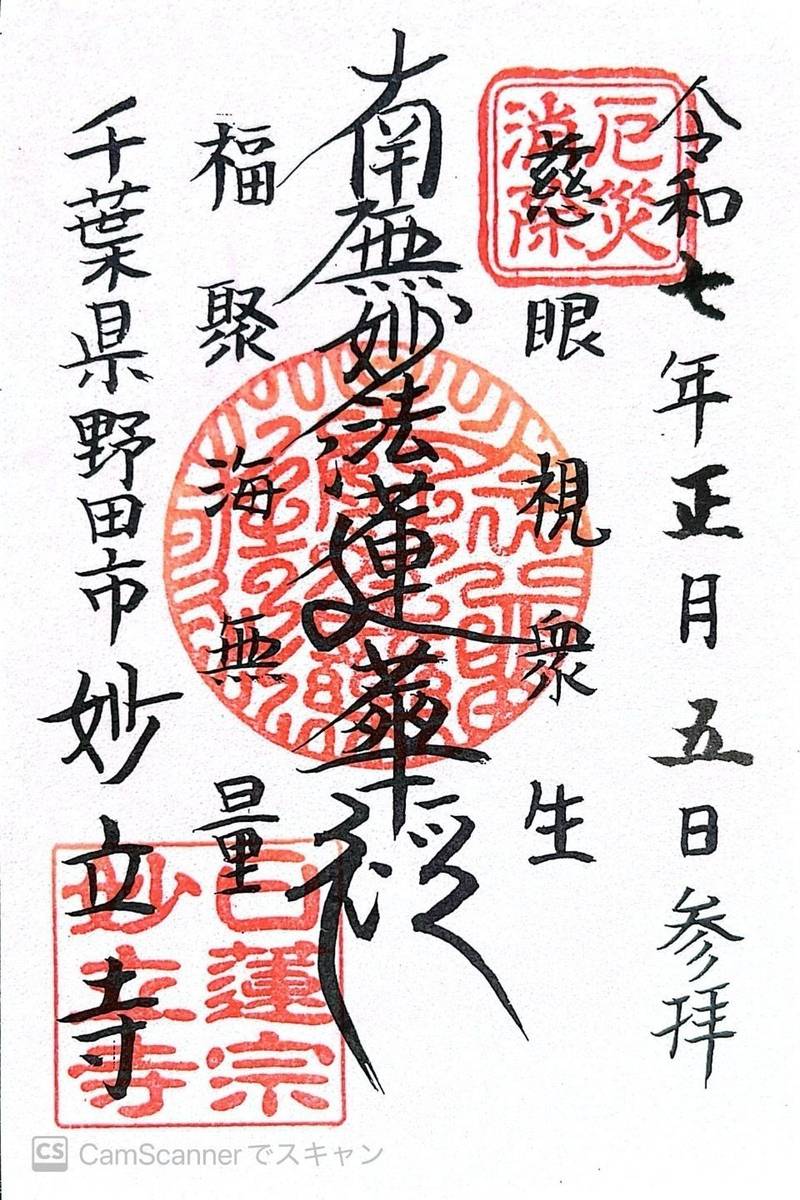 令和七年正月五日参拝
厄災
消除
慈眼視衆生
南無妙法蓮華経
福聚海無量
千葉県野田市妙立寺
日蓮宗
妙立寺
CS CamScannerでスキャン